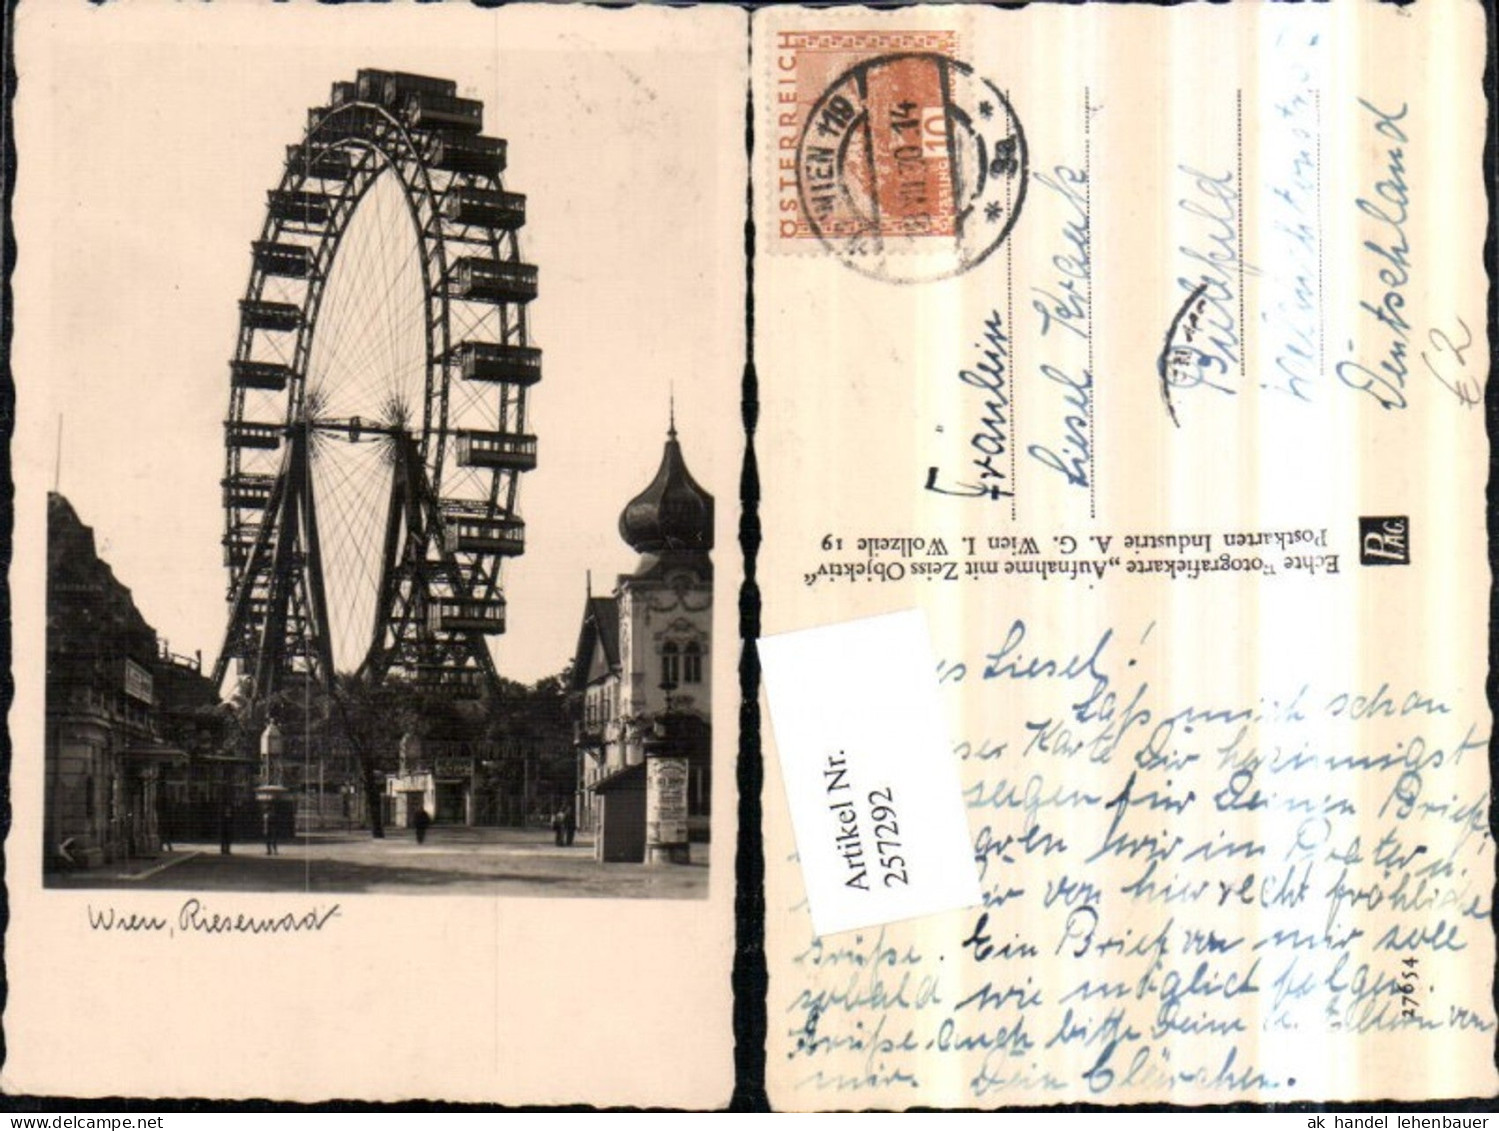 Wien, Riesenrad
ÖSTERREICH
10
GROSCHEN
WIEN 119
VII 20 14
* 3a *
Fräulein
Liesel Krauk
Bielefeld
Deutschland
€2
Echte Fotografiekarte „Aufnahme mit Zeiss Objektiv“
Postkarten Industrie A. G. Wien I. Wollzeile 19
PAG.
Artikel Nr.
257292
Liesel!
Laß mich schon
Karte Dir herzinnigst
für Deinen Brief.
wir im Prater u.
von hier recht fröhliche
Grüße. Ein Brief von mir soll
sobald wie möglich folgen.
Grüße auch bitte Deine l. Eltern von
mir. Dein Clärchen.
27654
ak handel lehenbauer